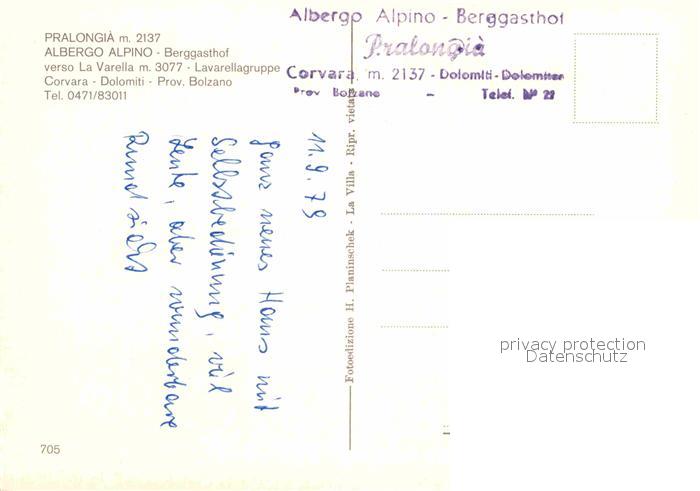 PRALONGIÀ m. 2137
ALBERGO ALPINO - Berggasthof
verso La Varella m. 3077 - Lavarellagruppe
Corvara - Dolomiti - Prov. Bolzano
Tel. 0471/83011
Albergo Alpino - Berggasthof
Pralongià
Corvara, m. 2137 - Dolomiti - Dolomiten
Prov Bolzano - Telef. Nº 22
11.9.79
Ganz neues Haus mit
Selbstbedienung, viel
Leute, aber wunderbare
Rundsicht
Fotoedizione H. Planinschek - La Villa - Ripr. vietata
privacy protection
Datenschutz
705